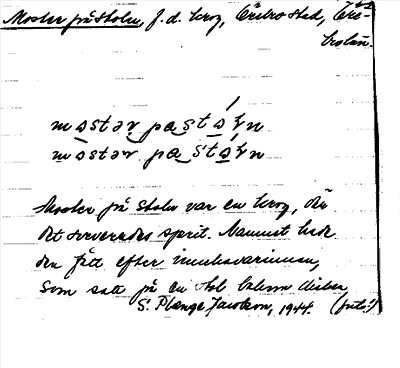 Moster på Stolen, f. d. krog, Örebro stad, Öre-
brolän.
mostər pa stɔln
mostər pa stɔln
Moster på Stolen var en krog, där
det serverades sprit. Namnet hade
den fått efter innehavarinnan,
som satt på en stol bakom disken
S. Plænge Jacobson, 1944.